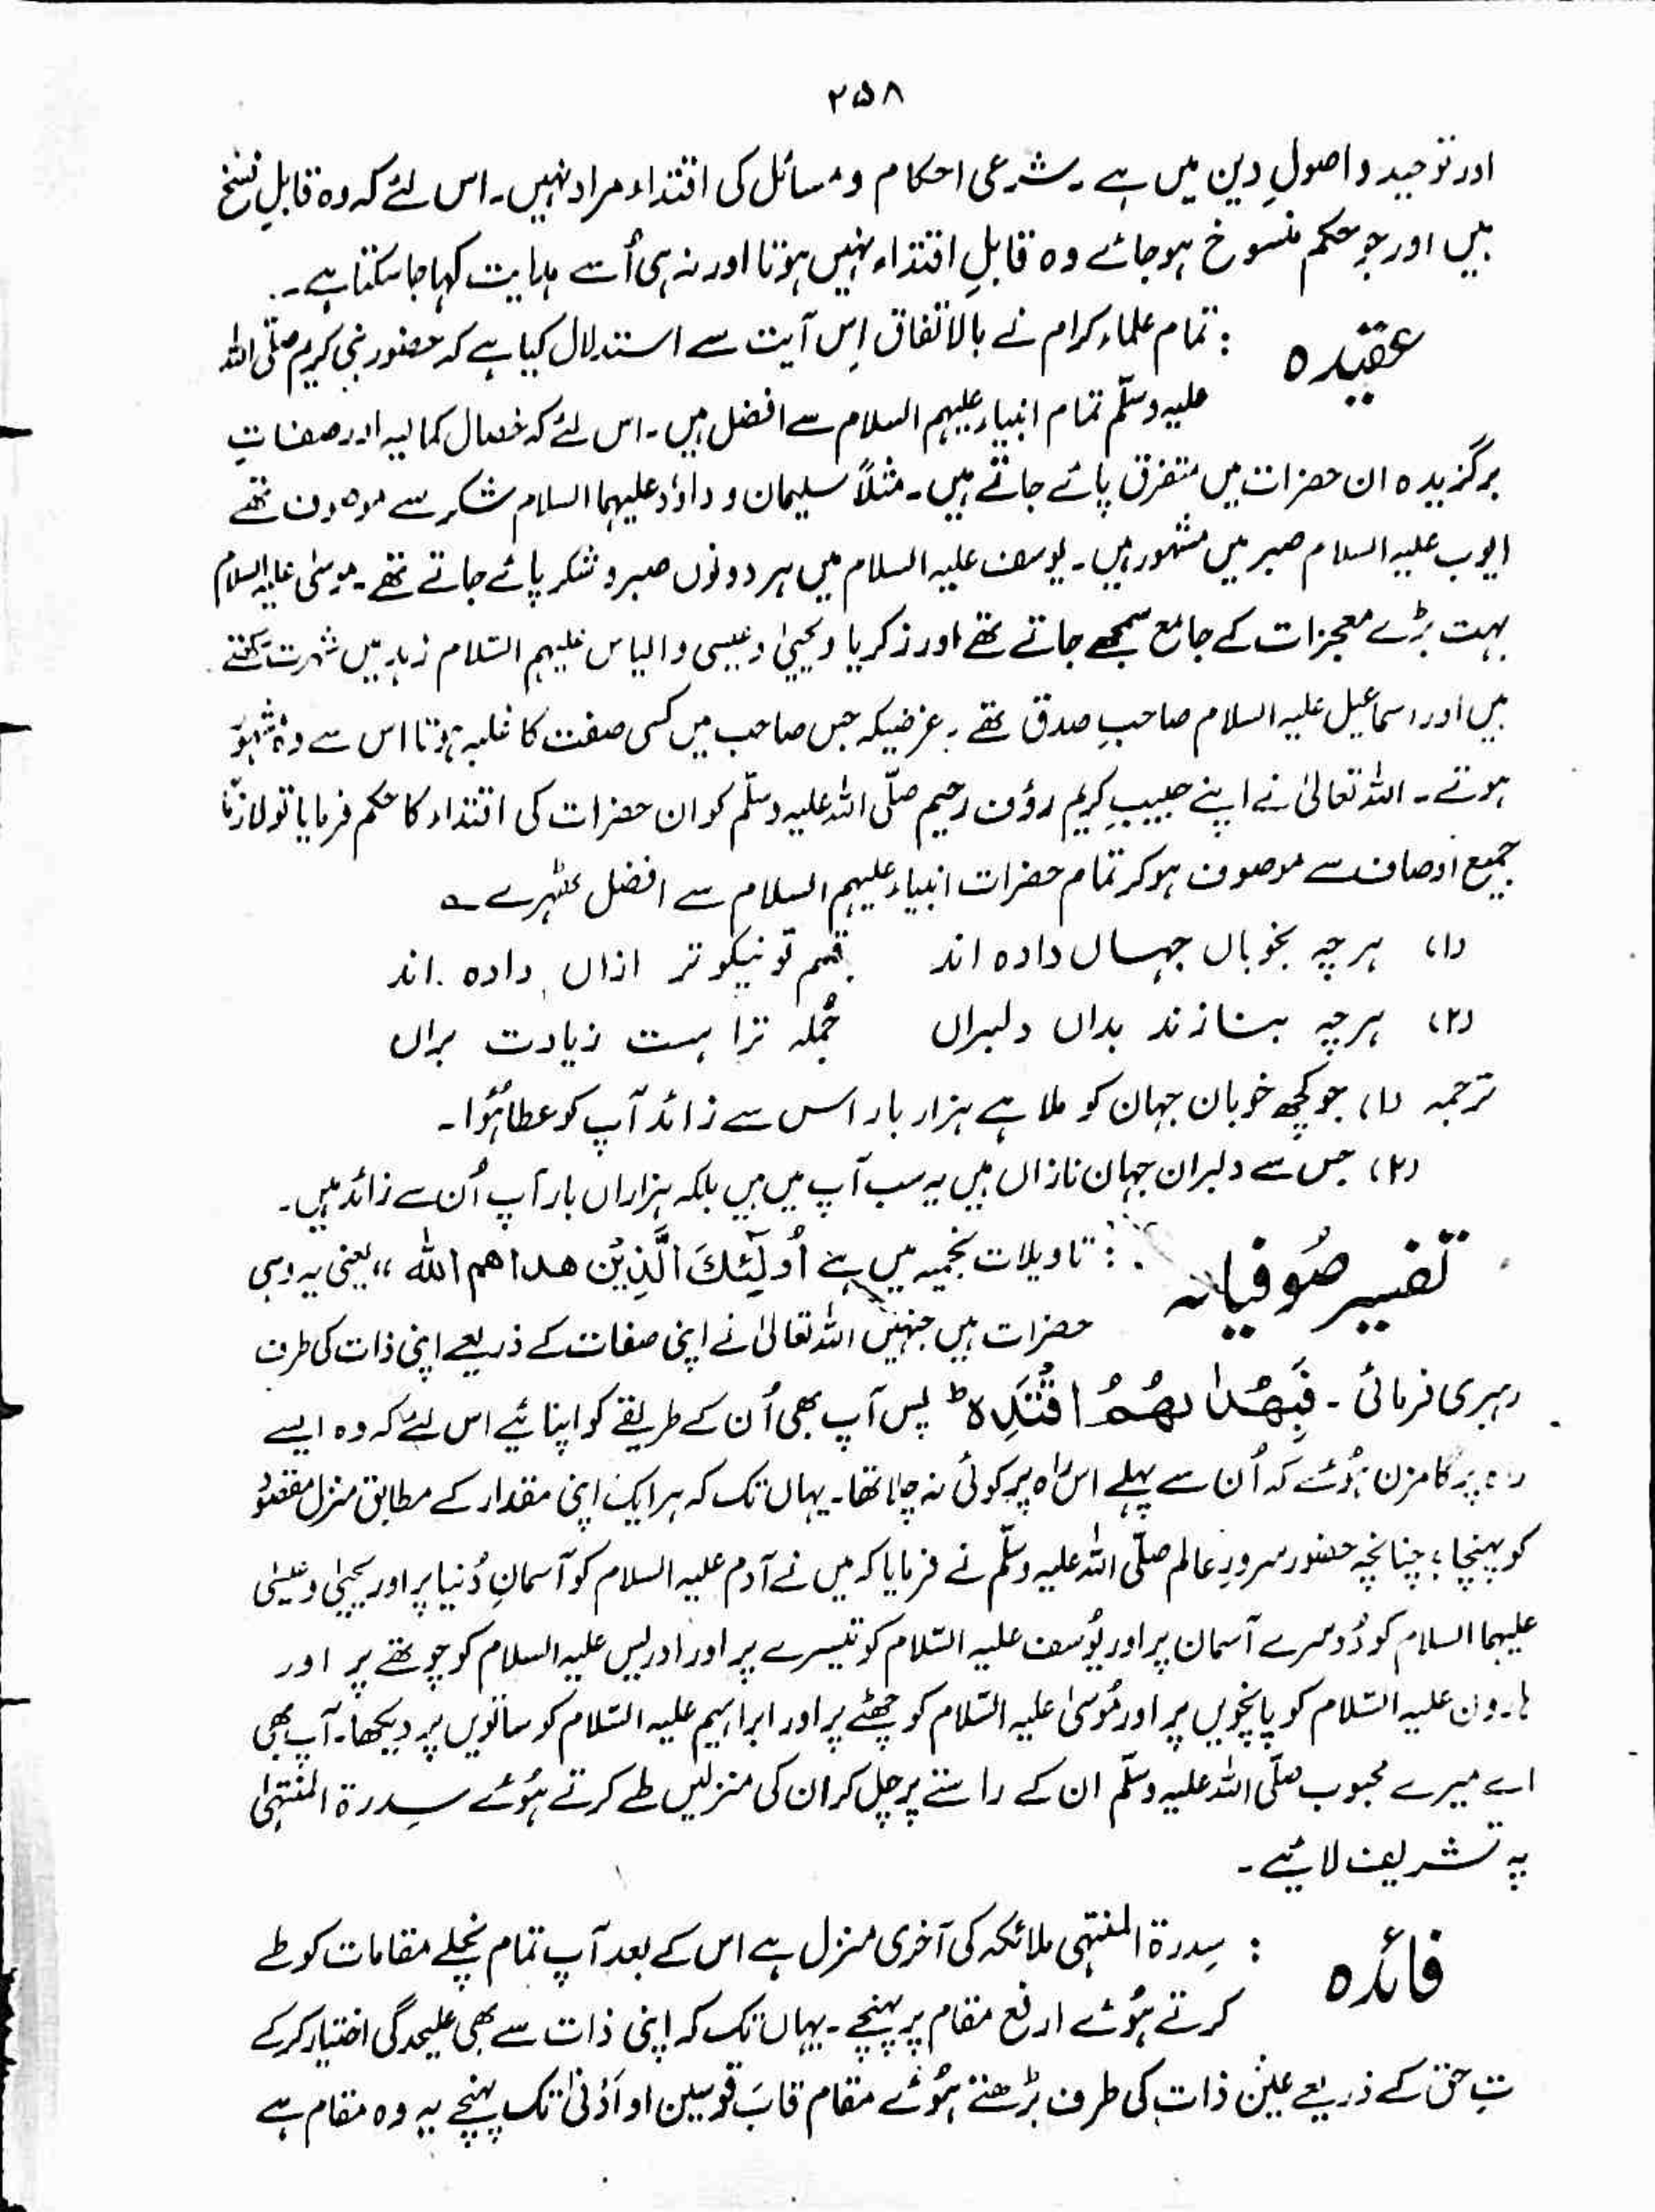 ۲۵۸
اور توحید و اصولِ دین میں ہے ۔ شرعی احکام و مسائل کی اقتداء مراد نہیں ۔ اس لئے کہ وہ قابلِ نسخ
ہیں اور جو حکم منسوخ ہو جائے وہ قابلِ اقتداء نہیں ہوتا اور نہ ہی اُسے ہدایت کہا جا سکتا ہے ۔
عقیدہ : تمام علماء کرام نے بالاتفاق اِس آیت سے استدلال کیا ہے کہ حضور نبی کریم صلّی اللہ
علیہ وسلّم تمام انبیاء علیہم السلام سے افضل ہیں ۔ اس لئے کہ خصال کمالیہ اور صفاتِ
برگزیدہ ان حضرات میں متفرق پائے جاتے ہیں ۔ مثلاً سلیمان و داؤد علیہما السلام شکر سے موصوف تھے
ایوب علیہ السلام صبر میں مشہور ہیں ۔ یوسف علیہ السلام میں ہر دونوں صبر و شکر پائے جاتے تھے ۔ موسیٰ علیہ السلام
بہت بڑے معجزات کے جامع سمجھے جاتے تھے اور زکریا و یحییٰ و عیسی و الیاس علیہم السّلام زہد میں شہرت رکھتے
ہیں اور اسماعیل علیہ السلام صاحبِ صدق تھے ۔ غرضیکہ جس صاحب میں کسی صفت کا غلبہ ہوتا اس سے وہ مشہور
ہوتے ۔ اللہ تعالیٰ نے اپنے حبیبِ کریم رؤف رحیم صلّی اللہ علیہ وسلّم کو ان حضرات کی اقتداء کا حکم فرمایا تو لازمًا
جمیع اوصاف سے موصوف ہو کر تمام حضرات انبیاء علیہم السلام سے افضل ٹھہرے ؎
(۱) ہر چہ بخوباں جہاں دادہ اند قسم تو نیکو تر ازاں دادہ اند
(۲) ہر چہ بنازند بداں دلبراں جُملہ ترا ہست زیادت براں
ترجمہ (۱) جو کچھ خوبان جہان کو ملا ہے ہزار بار اس سے زائد آپ کو عطا ہُوا ۔
(۲) جس سے دلبران جہان نازاں ہیں یہ سب آپ میں ہیں بلکہ ہزاراں بار آپ اُن سے زائد ہیں ۔
تفسیر صُوفیانہ : تاویلات نجمیہ میں ہے اُولٰٓئِكَ الَّذِيْنَ هداهم الله ،، یعنی یہ وہی
حضرات ہیں جنہیں اللہ تعالیٰ نے اپنی صفات کے ذریعے اپنی ذات کی طرف
رہبری فرمائی ۔ فَبِهُدٰىهُمُ اقْتَدِهْ ط پس آپ بھی اُن کے طریقے کو اپنائیے اس لئے کہ وہ ایسے
راہ پر گامزن ہُوئے کہ اُن سے پہلے اس راہ پر کوئی نہ چلا تھا ۔ یہاں تک کہ ہر ایک اپنی مقدار کے مطابق منزل مقصُود
کو پہنچا ؛ چنانچہ حضور سرورِ عالم صلّی اللہ علیہ وسلّم نے فرمایا کہ میں نے آدم علیہ السلام کو آسمانِ دُنیا پر اور یحییٰ و عیسیٰ
علیہما السلام کو دُوسرے آسمان پر اور یُوسف علیہ السّلام کو تیسرے پر اور ادریس علیہ السلام کو چوتھے پر اور
ہارون علیہ السّلام کو پانچویں پر اور مُوسیٰ علیہ السّلام کو چھٹے پر اور ابراہیم علیہ السّلام کو ساتویں پر دیکھا ۔ آپ بھی
اے میرے محبوب صلّی اللہ علیہ وسلّم ان کے راستے پر چل کر ان کی منزلیں طے کرتے ہُوئے سِدرۃ المنتہیٰ
پہ تشریف لائیے ۔
فائدہ : سِدرۃ المنتہی ملائکہ کی آخری منزل ہے اس کے بعد آپ تمام نچلے مقامات کو طے
کرتے ہُوئے ارفع مقام پر پہنچے ۔ یہاں تک کہ اپنی ذات سے بھی علیحدگی اختیار کر کے
تِ حق کے ذریعے عین ذات کی طرف بڑھتے ہُوئے مقام قابَ قوسین او اَدْنیٰ تک پہنچے یہ وہ مقام ہے